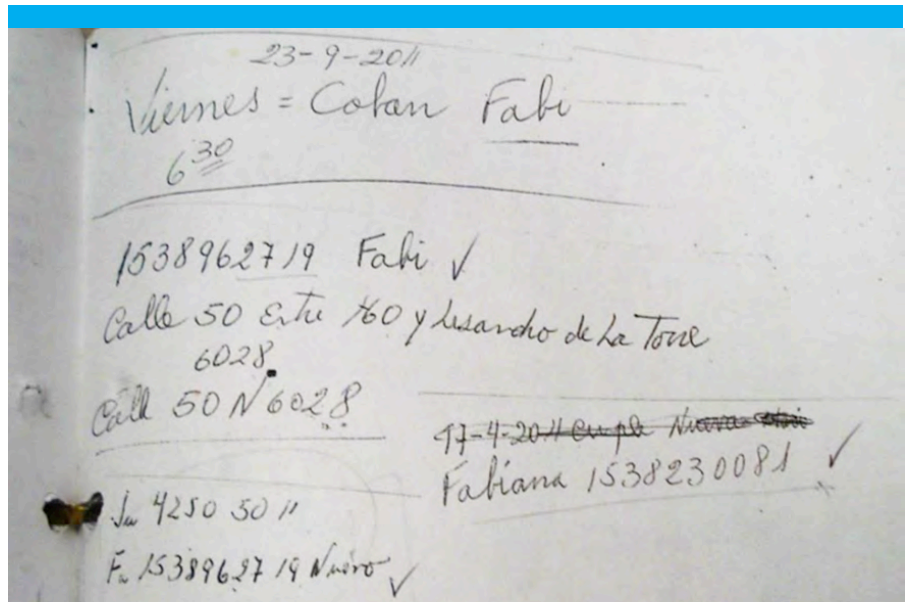 23-9-2011
Viernes = Coban Fabi
6 30
1538962719 Fabi ✓
Calle 50 Entre 160 y Lisandro de La Torre
6028
Calle 50 N 6028
17-4-2011 cumple Nueva
Fabiana 1538230081 ✓
4250 50 11
Fa 1538962719 Nuevo ✓